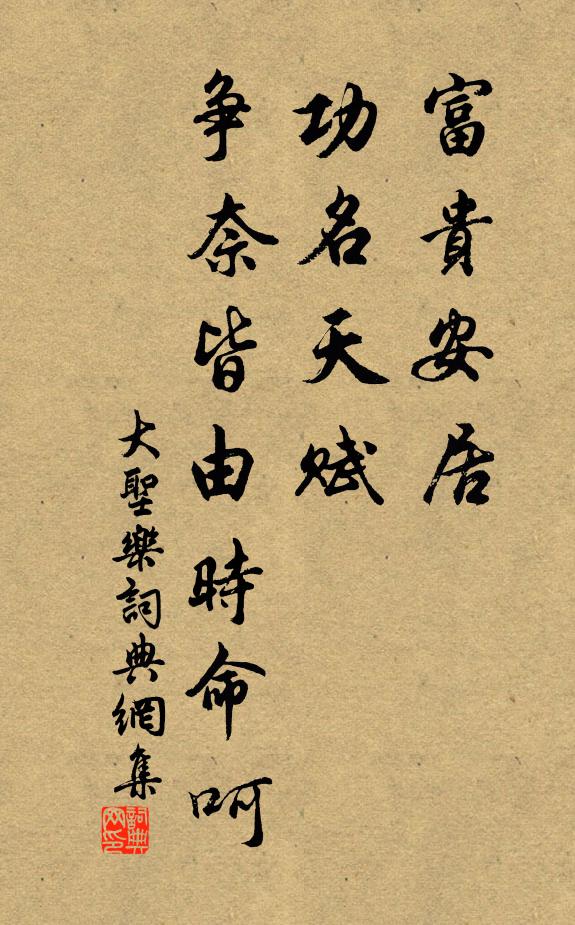 富貴安居
功名天賦
争奈皆由時命呵
大聖樂詞典網集
詞典
网印